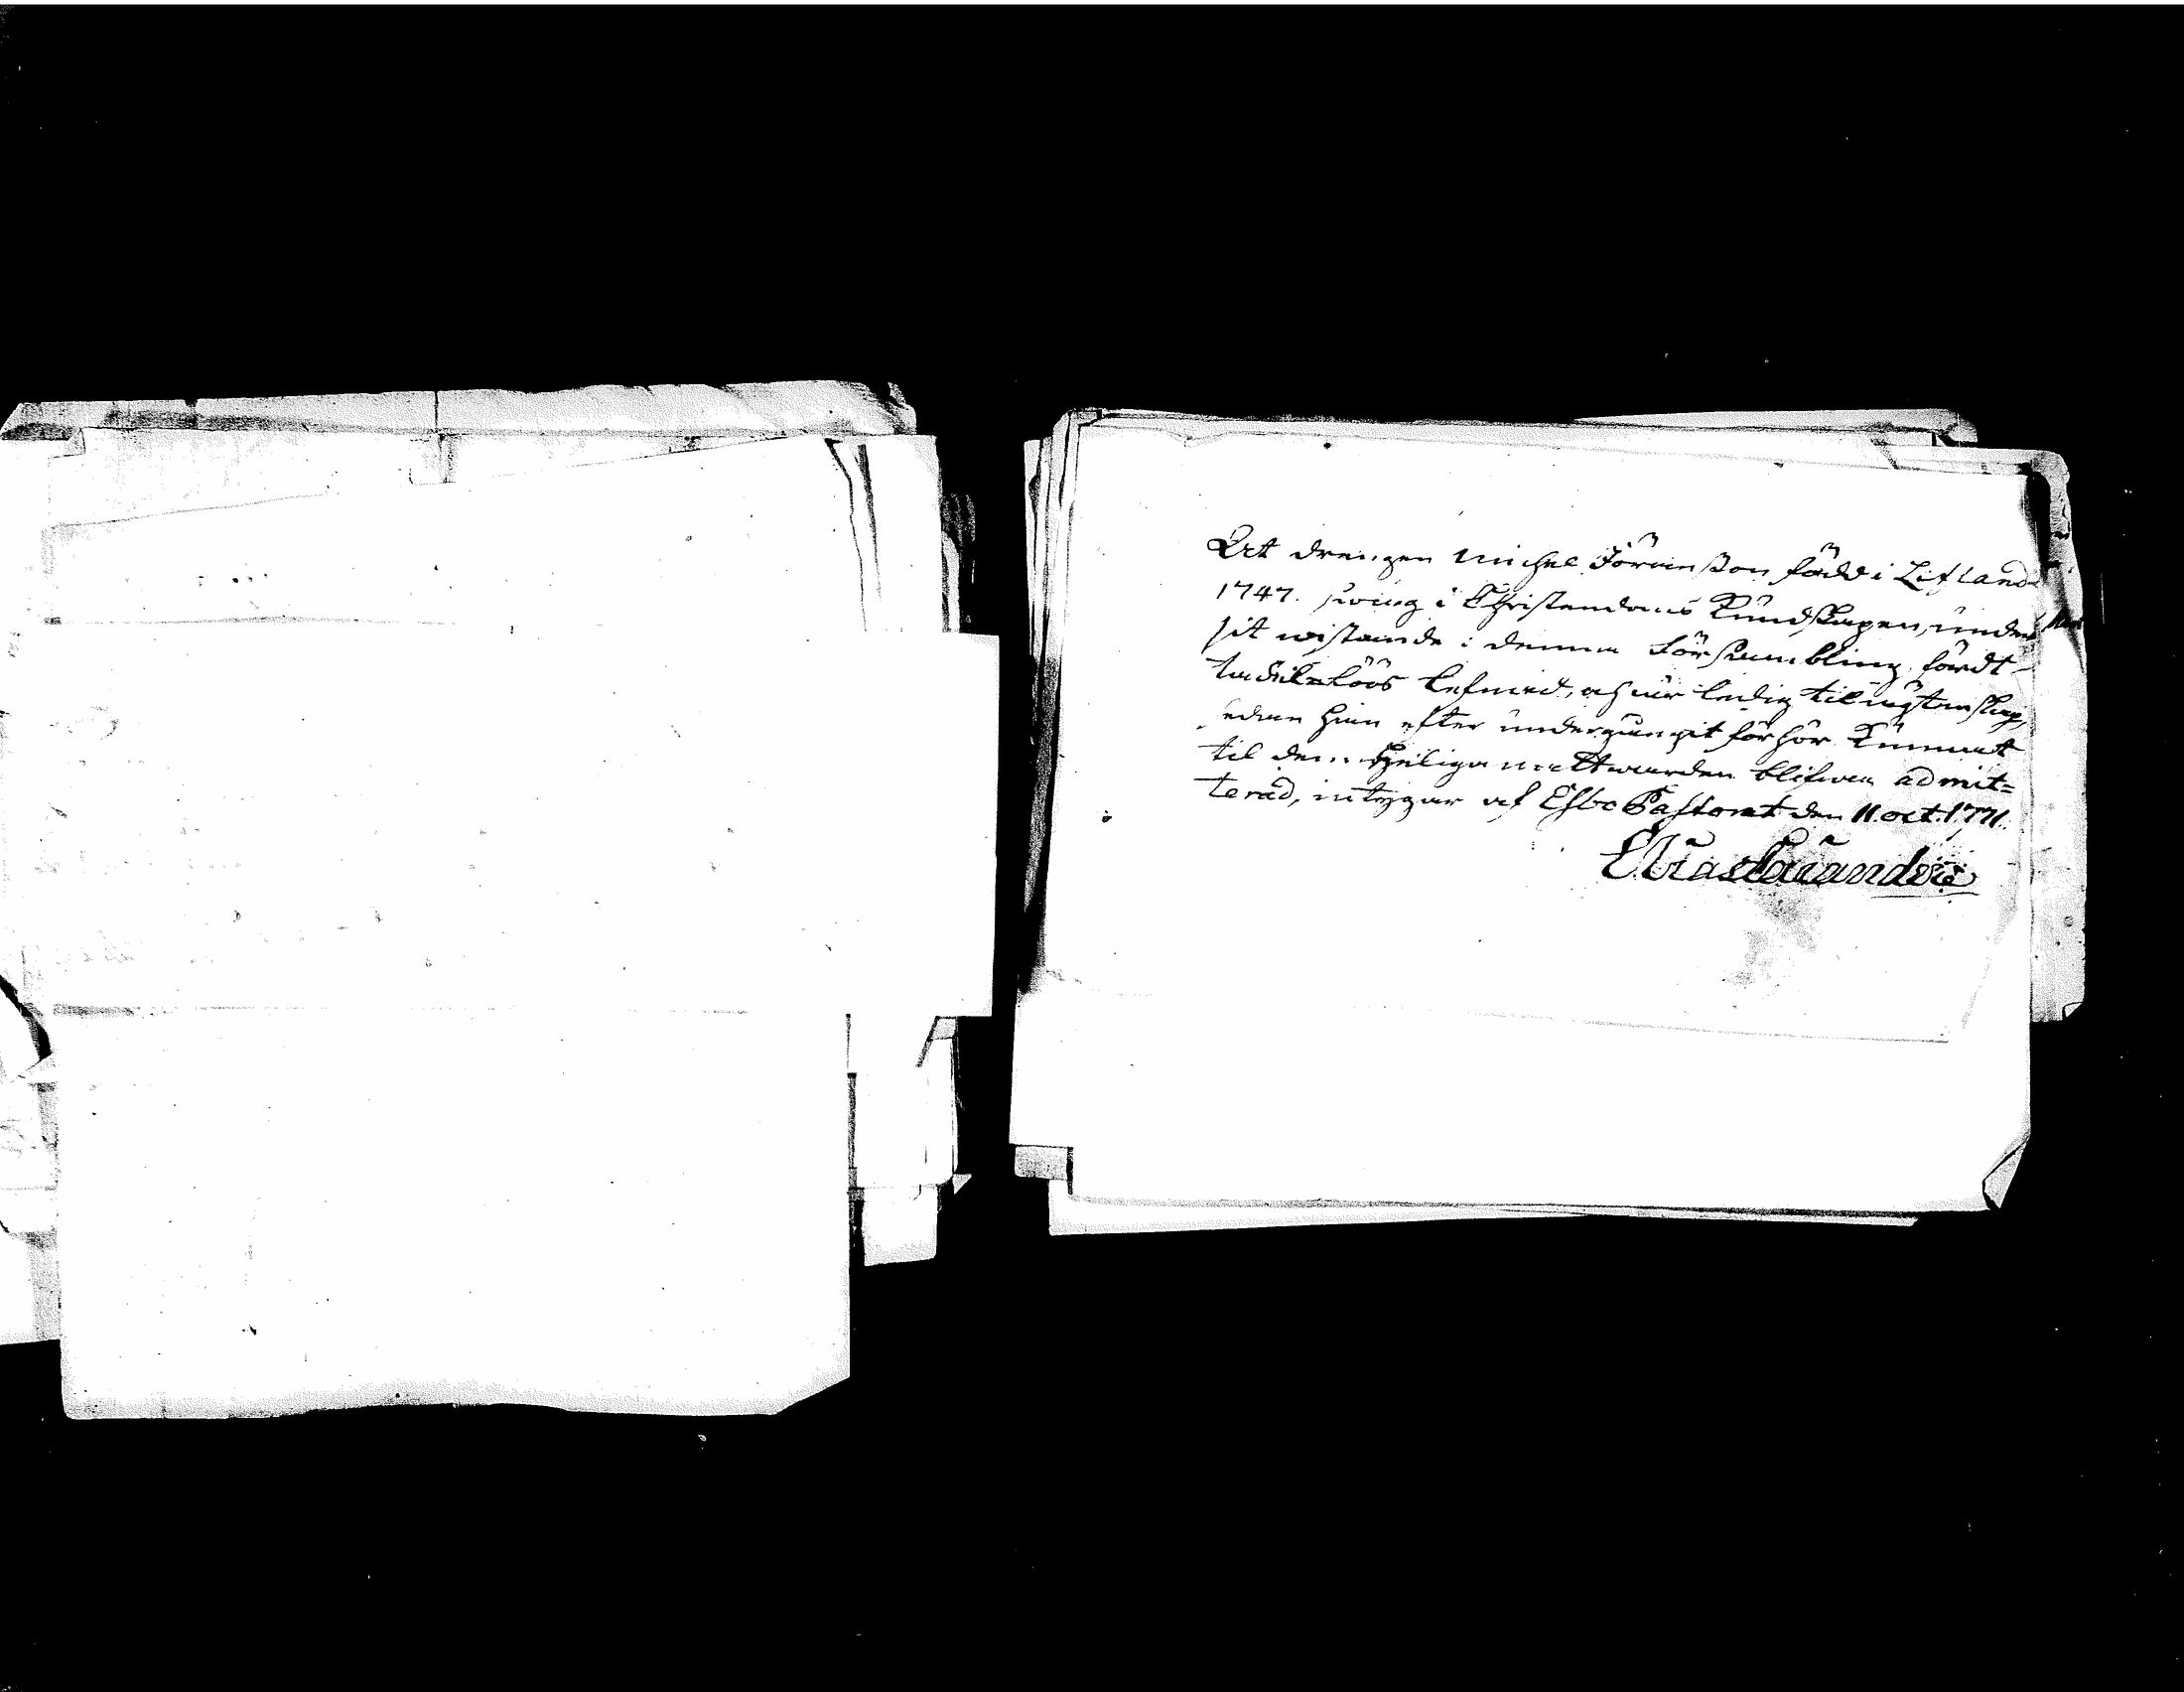 At drengen Michel Jöransson född i Lifland
1747. swag i Christendoms Kundskapen, under
sit wistande i denna Försambling fördt
tadel-löös lefnad, och är ledig til ägtenskap,
sedan han efter undergångit förhör kunnat
til den Heliga nattwarden blifwa admit=
terad, intygar af Esbo Pastorat den 11 oct. 1771.
Elias